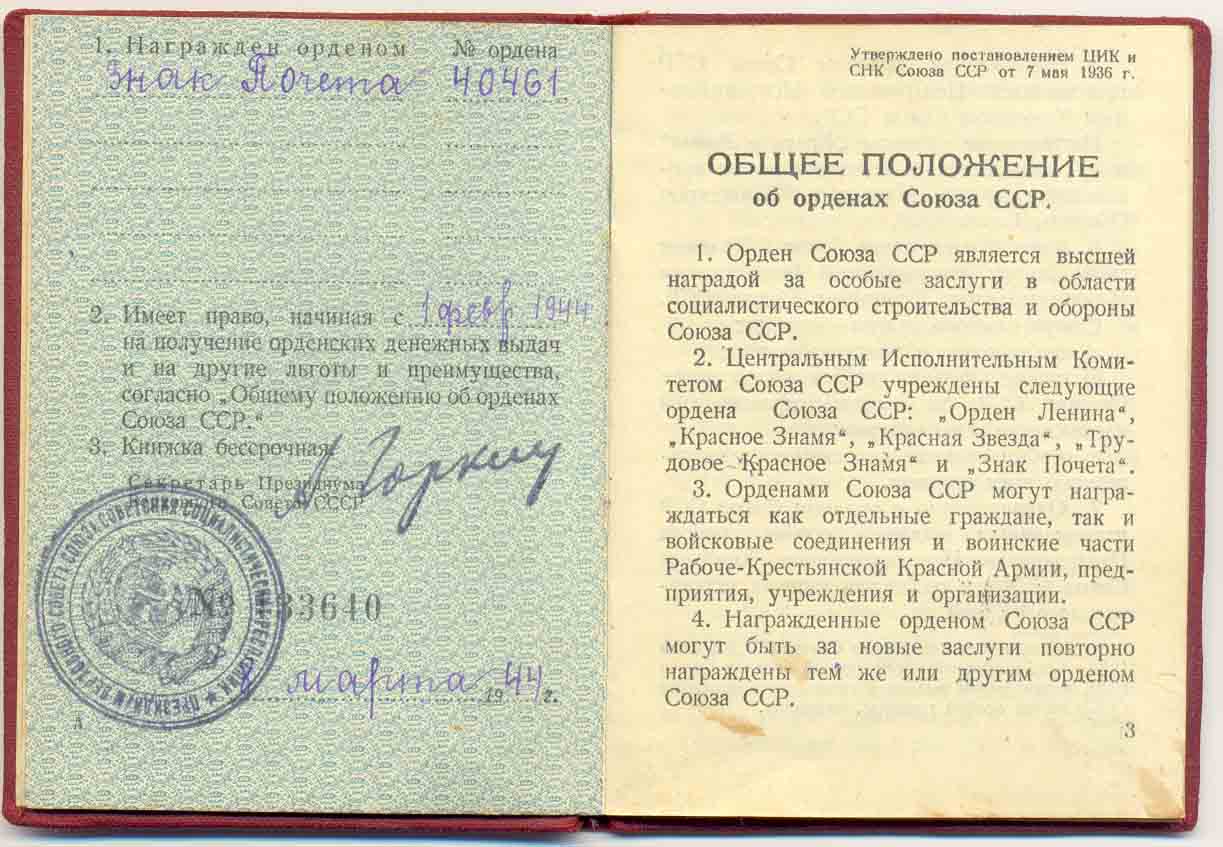 1. Награжден орденом № ордена
Знак Почета 40461
2. Имеет право, начиная с 1 февр 1944
на получение орденских денежных выдач
и на другие льготы и преимущества,
согласно „Общему положению об орденах
Союза ССР.“
3. Книжка бессрочная.
Секретарь Президиума
Верховного Совета СССР
А Горкин
№ 33640
марта 1944 г.
А
Утверждено постановлением ЦИК и
СНК Союза ССР от 7 мая 1936 г.
ОБЩЕЕ ПОЛОЖЕНИЕ
об орденах Союза ССР.
1. Орден Союза ССР является высшей
наградой за особые заслуги в области
социалистического строительства и обороны
Союза ССР.
2. Центральным Исполнительным Коми-
тетом Союза ССР учреждены следующие
ордена Союза ССР: „Орден Ленина“,
„Красное Знамя“, „Красная Звезда“, „Тру-
довое Красное Знамя“ и „Знак Почета“.
3. Орденами Союза ССР могут награ-
ждаться как отдельные граждане, так и
войсковые соединения и воинские части
Рабоче-Крестьянской Красной Армии, пред-
приятия, учреждения и организации.
4. Награжденные орденом Союза ССР
могут быть за новые заслуги повторно
награждены тем же или другим орденом
Союза ССР.
3